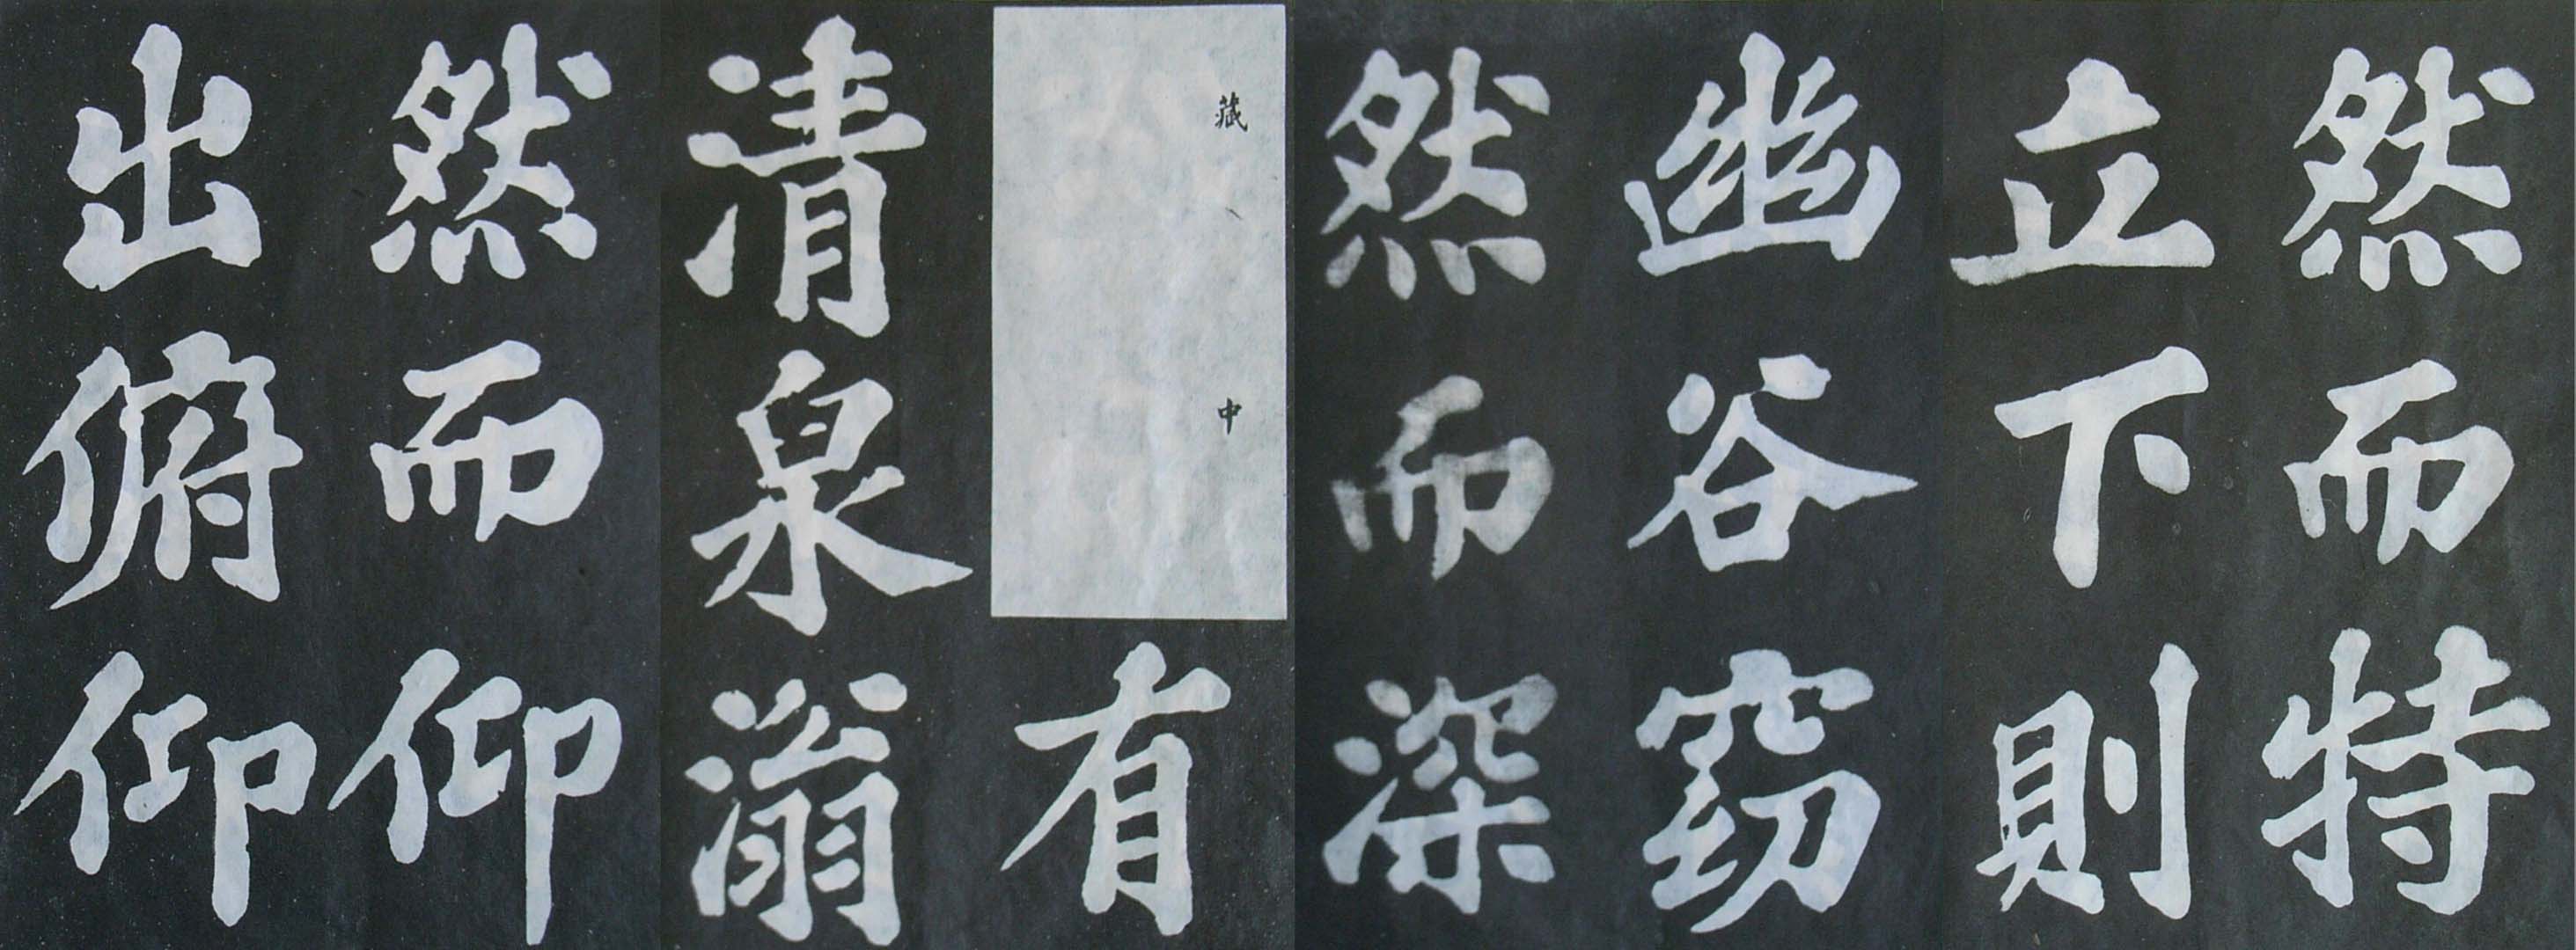 然而特
立下則
幽谷窈
然而深
藏中有
清泉滃
然而仰
出俯仰